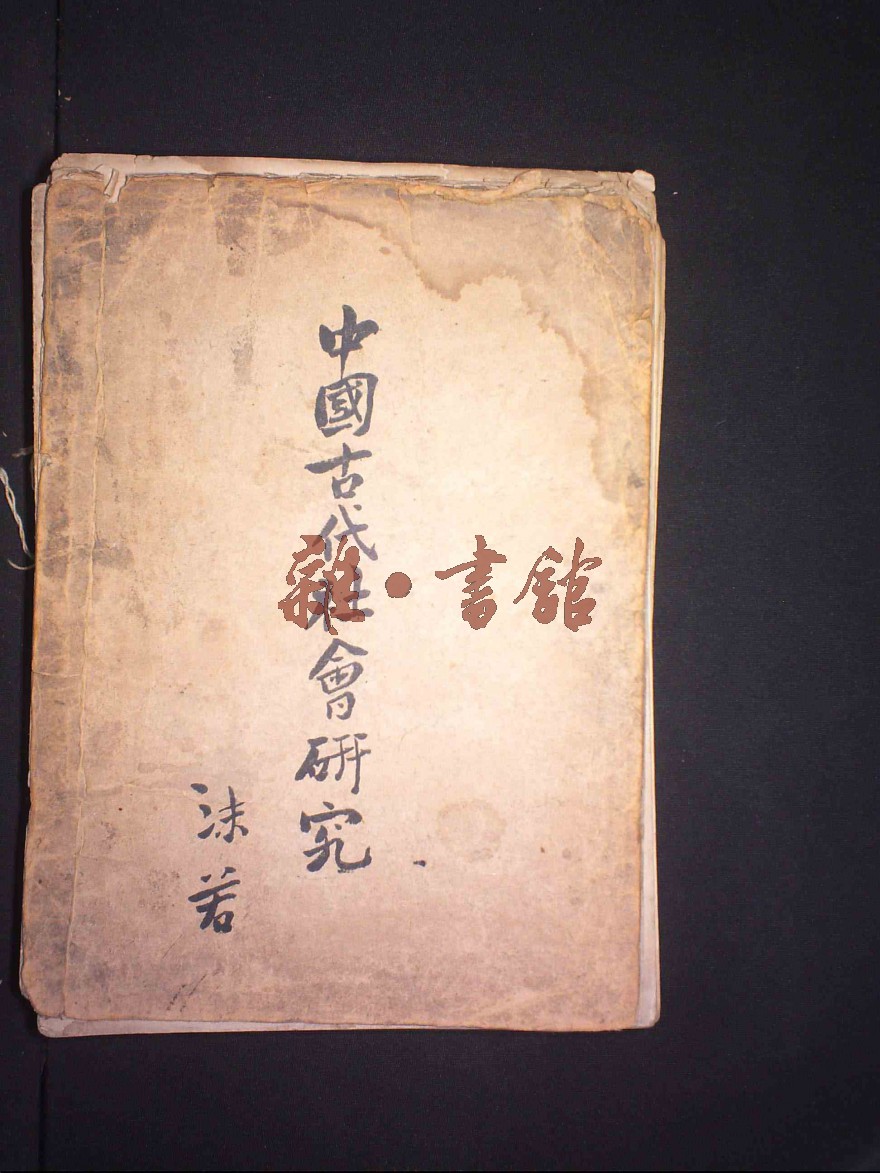 中國古代社會研究
沫若
雜•書館